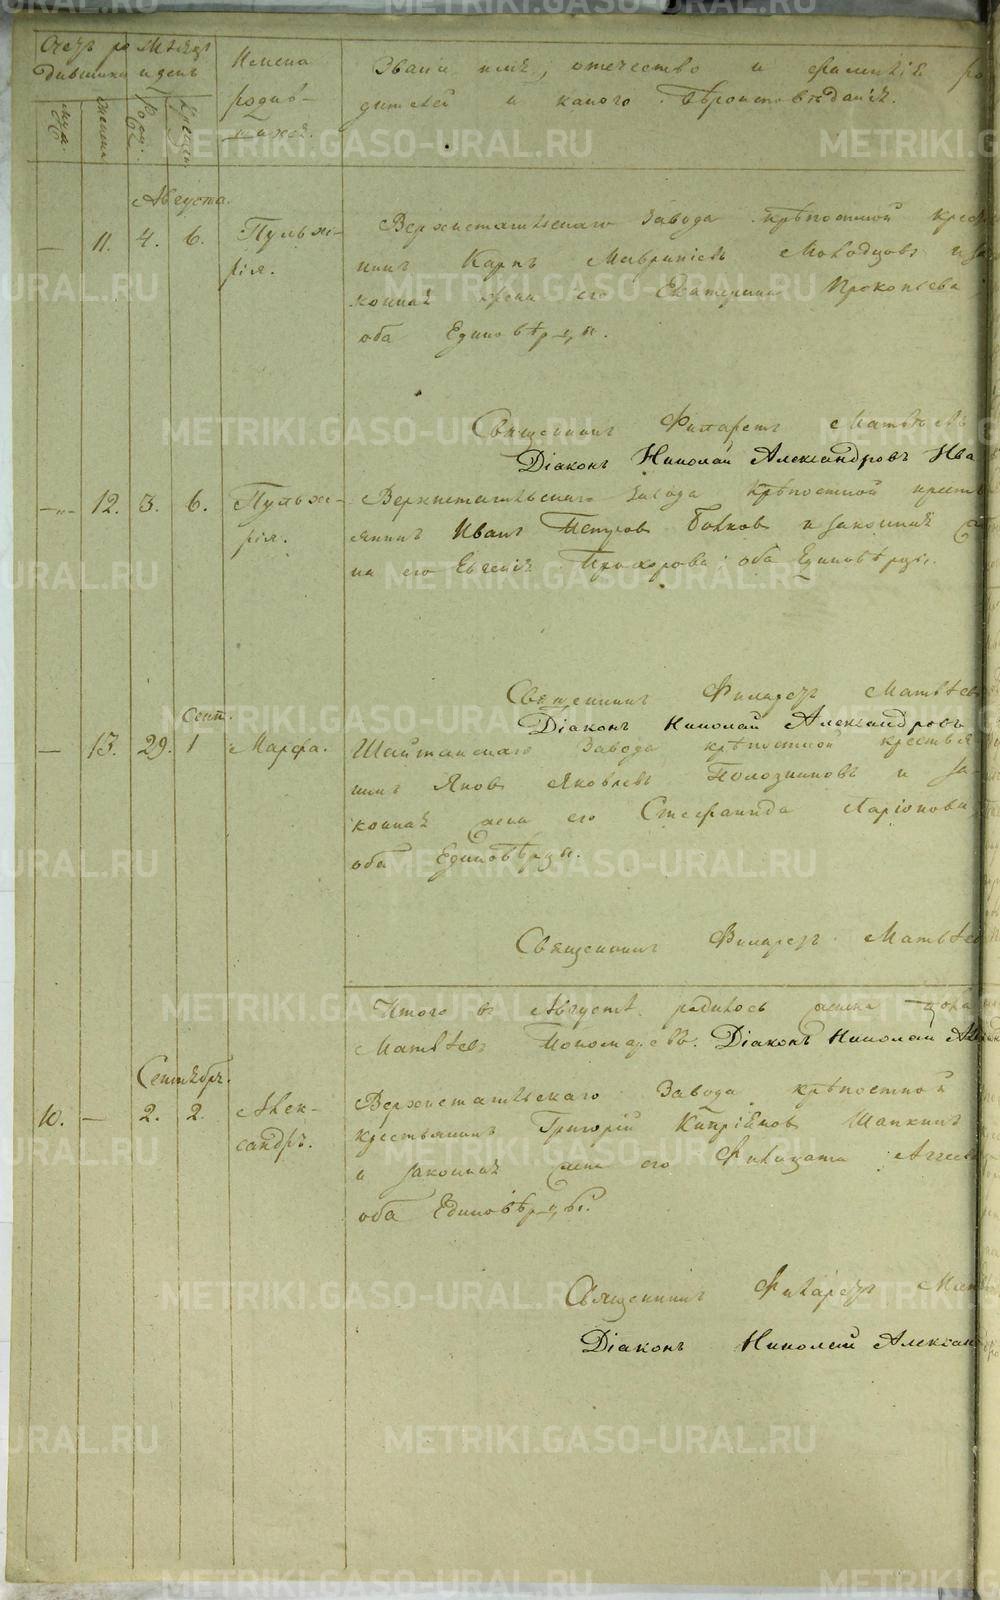 Счетъ ро- Мѣсяцъ
дившихся и день
Имена
родив-
шихся.
Званіе имя, отечество и фамилія ро
дителей и какого вѣроисповѣданія.
муж.
женска
Рожд.
Крещен.
Августа.
— 11. 4. 6. Пульхе-
рія.
Верхнетагильскаго Завода крѣпостной кресть
нинъ Карпъ Мавринiевъ Молодцовъ и за
конная жена его Екатерина Прокопьева
оба Единовѣрцы.
Священникъ Филаретъ Матвѣевъ
Діаконъ Николай Александровъ Ива
— 12. 3. 6. Пульхе-
рія.
Верхнетагильскаго Завода крѣпостной кресть
янинъ Иванъ Петровъ Волковъ и законная
на его Евгенія Прохорова оба Единовѣрцы.
Священникъ Филаретъ Матвѣев
Діаконъ Николай Александровъ
Сент.
— 13. 29. 1 Марфа.
Шайтанскаго Завода крѣпостной крестья
нинъ Яковъ Яковлевъ Полозниковъ и за-
конная жена его Стефанида Ларіонова
оба Единовѣрцы.
Священникъ Филаретъ Матвѣев
Итого въ Августѣ родилось
Матвѣевъ Пономаревъ. Діаконъ Николай Ал
Сентябрь.
10. — 2. 2. Алек-
сандръ.
Верхнетагильскаго Завода крѣпостной
крестьянинъ Григорій Кипріяновъ Шапкинъ
и законная жена его Филицата
оба Единовѣрцы.
Священникъ Филаретъ Матв
Діаконъ Николай Александ
METRIKI.GASO-URAL.RU